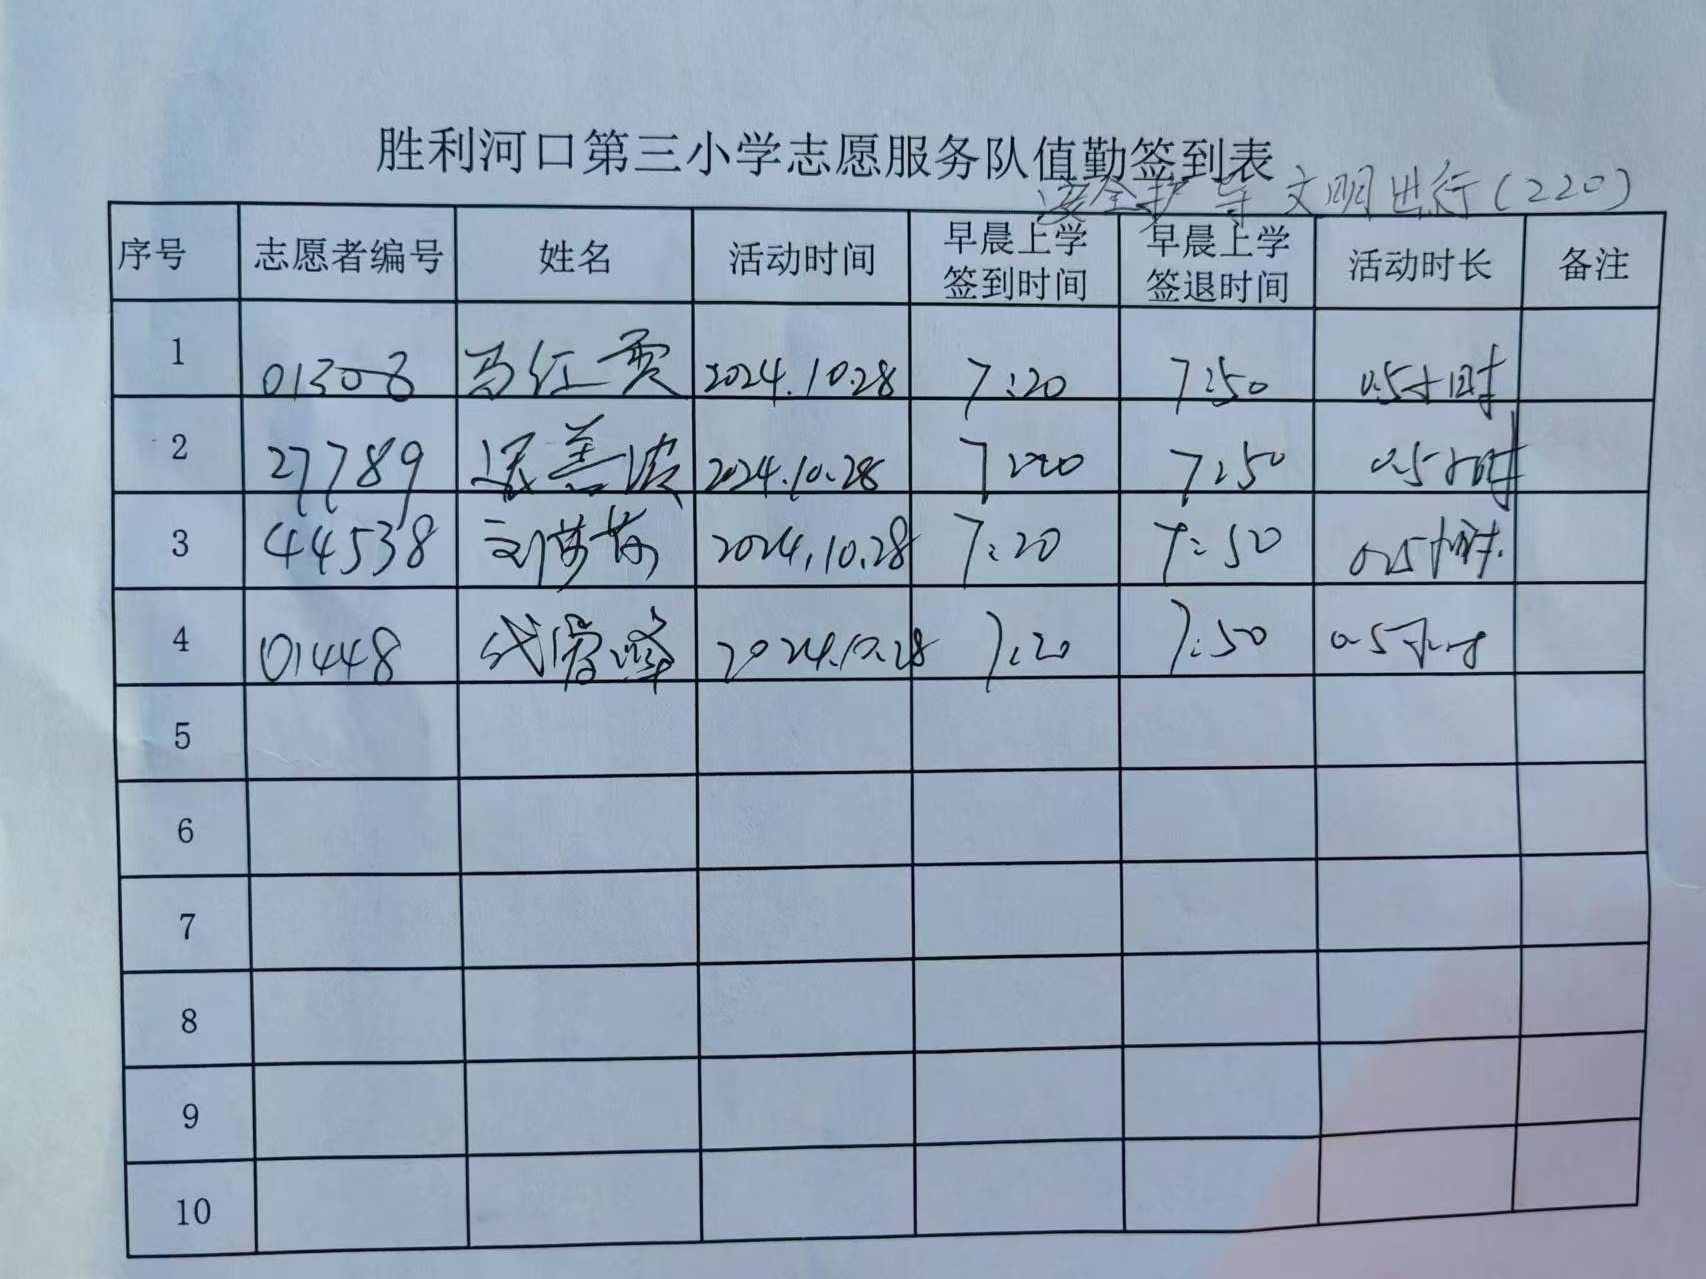 胜利河口第三小学志愿服务队值勤签到表
安全护导 文明进行(220)
序号 志愿者编号 姓名 活动时间 早晨上学签到时间 早晨上学签退时间 活动时长 备注
1 01308 马红 2024.10.28 7:20 7:50 0.5小时
2 27789 2024.10.28 7:20 7:50 0.5小时
3 44538 刘莎莎 2024.10.28 7:20 7:50 0.5小时
4 01448 2024.10.28 7:20 7:50 0.5小时
5
6
7
8
9
10